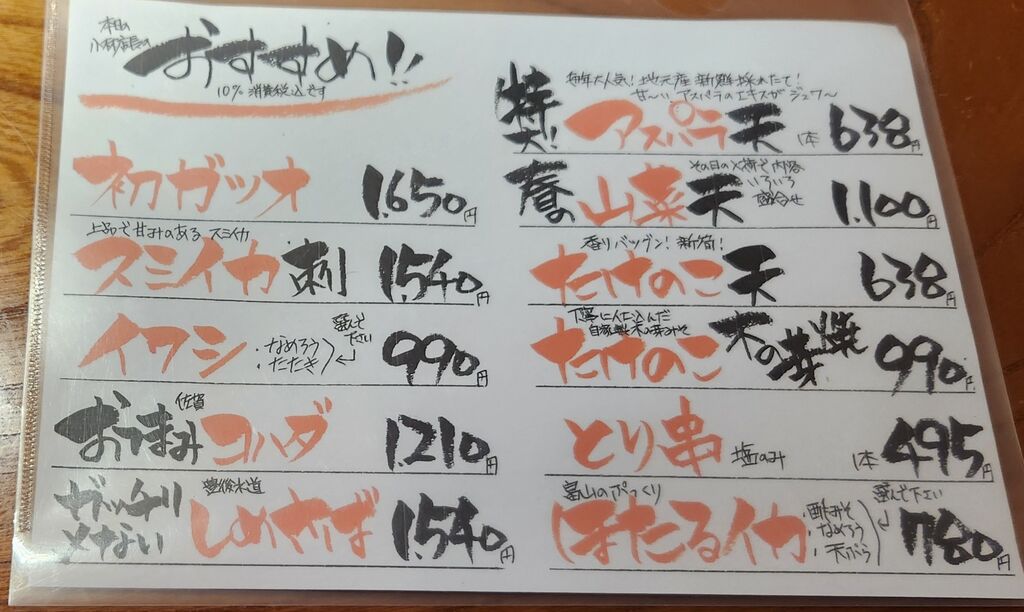 本日の
小村店長の
おすすめ!!
10% 消費税込です
初ガツオ 1.650円
上品で甘みのある スミイカ
スミイカ刺 1.540円
イワシ ・なめろう ・たたき 選んで下さい 990円
おつまみ 佐賀 コハダ 1.210円
ガッチリ〆ない 豊後水道 しめさば 1.540円
毎年大人気! 地元産 新鮮採れたて!
甘〜い アスパラのエキスが ジュワ〜
特大! アスパラ天 1本 638円
春の山菜天 その日の入荷で内容いろいろ盛合せ 1.100円
香りバツグン! 新筍!
たけのこ天 638円
丁寧に仕込んだ
自家製木の芽みそ
たけのこ木の芽焼 990円
とり串 塩のみ 1本 495円
富山のぷっくり
ほたるイカ ・酢みそ ・なめろう ・天ぷら 選んで下さい 780円